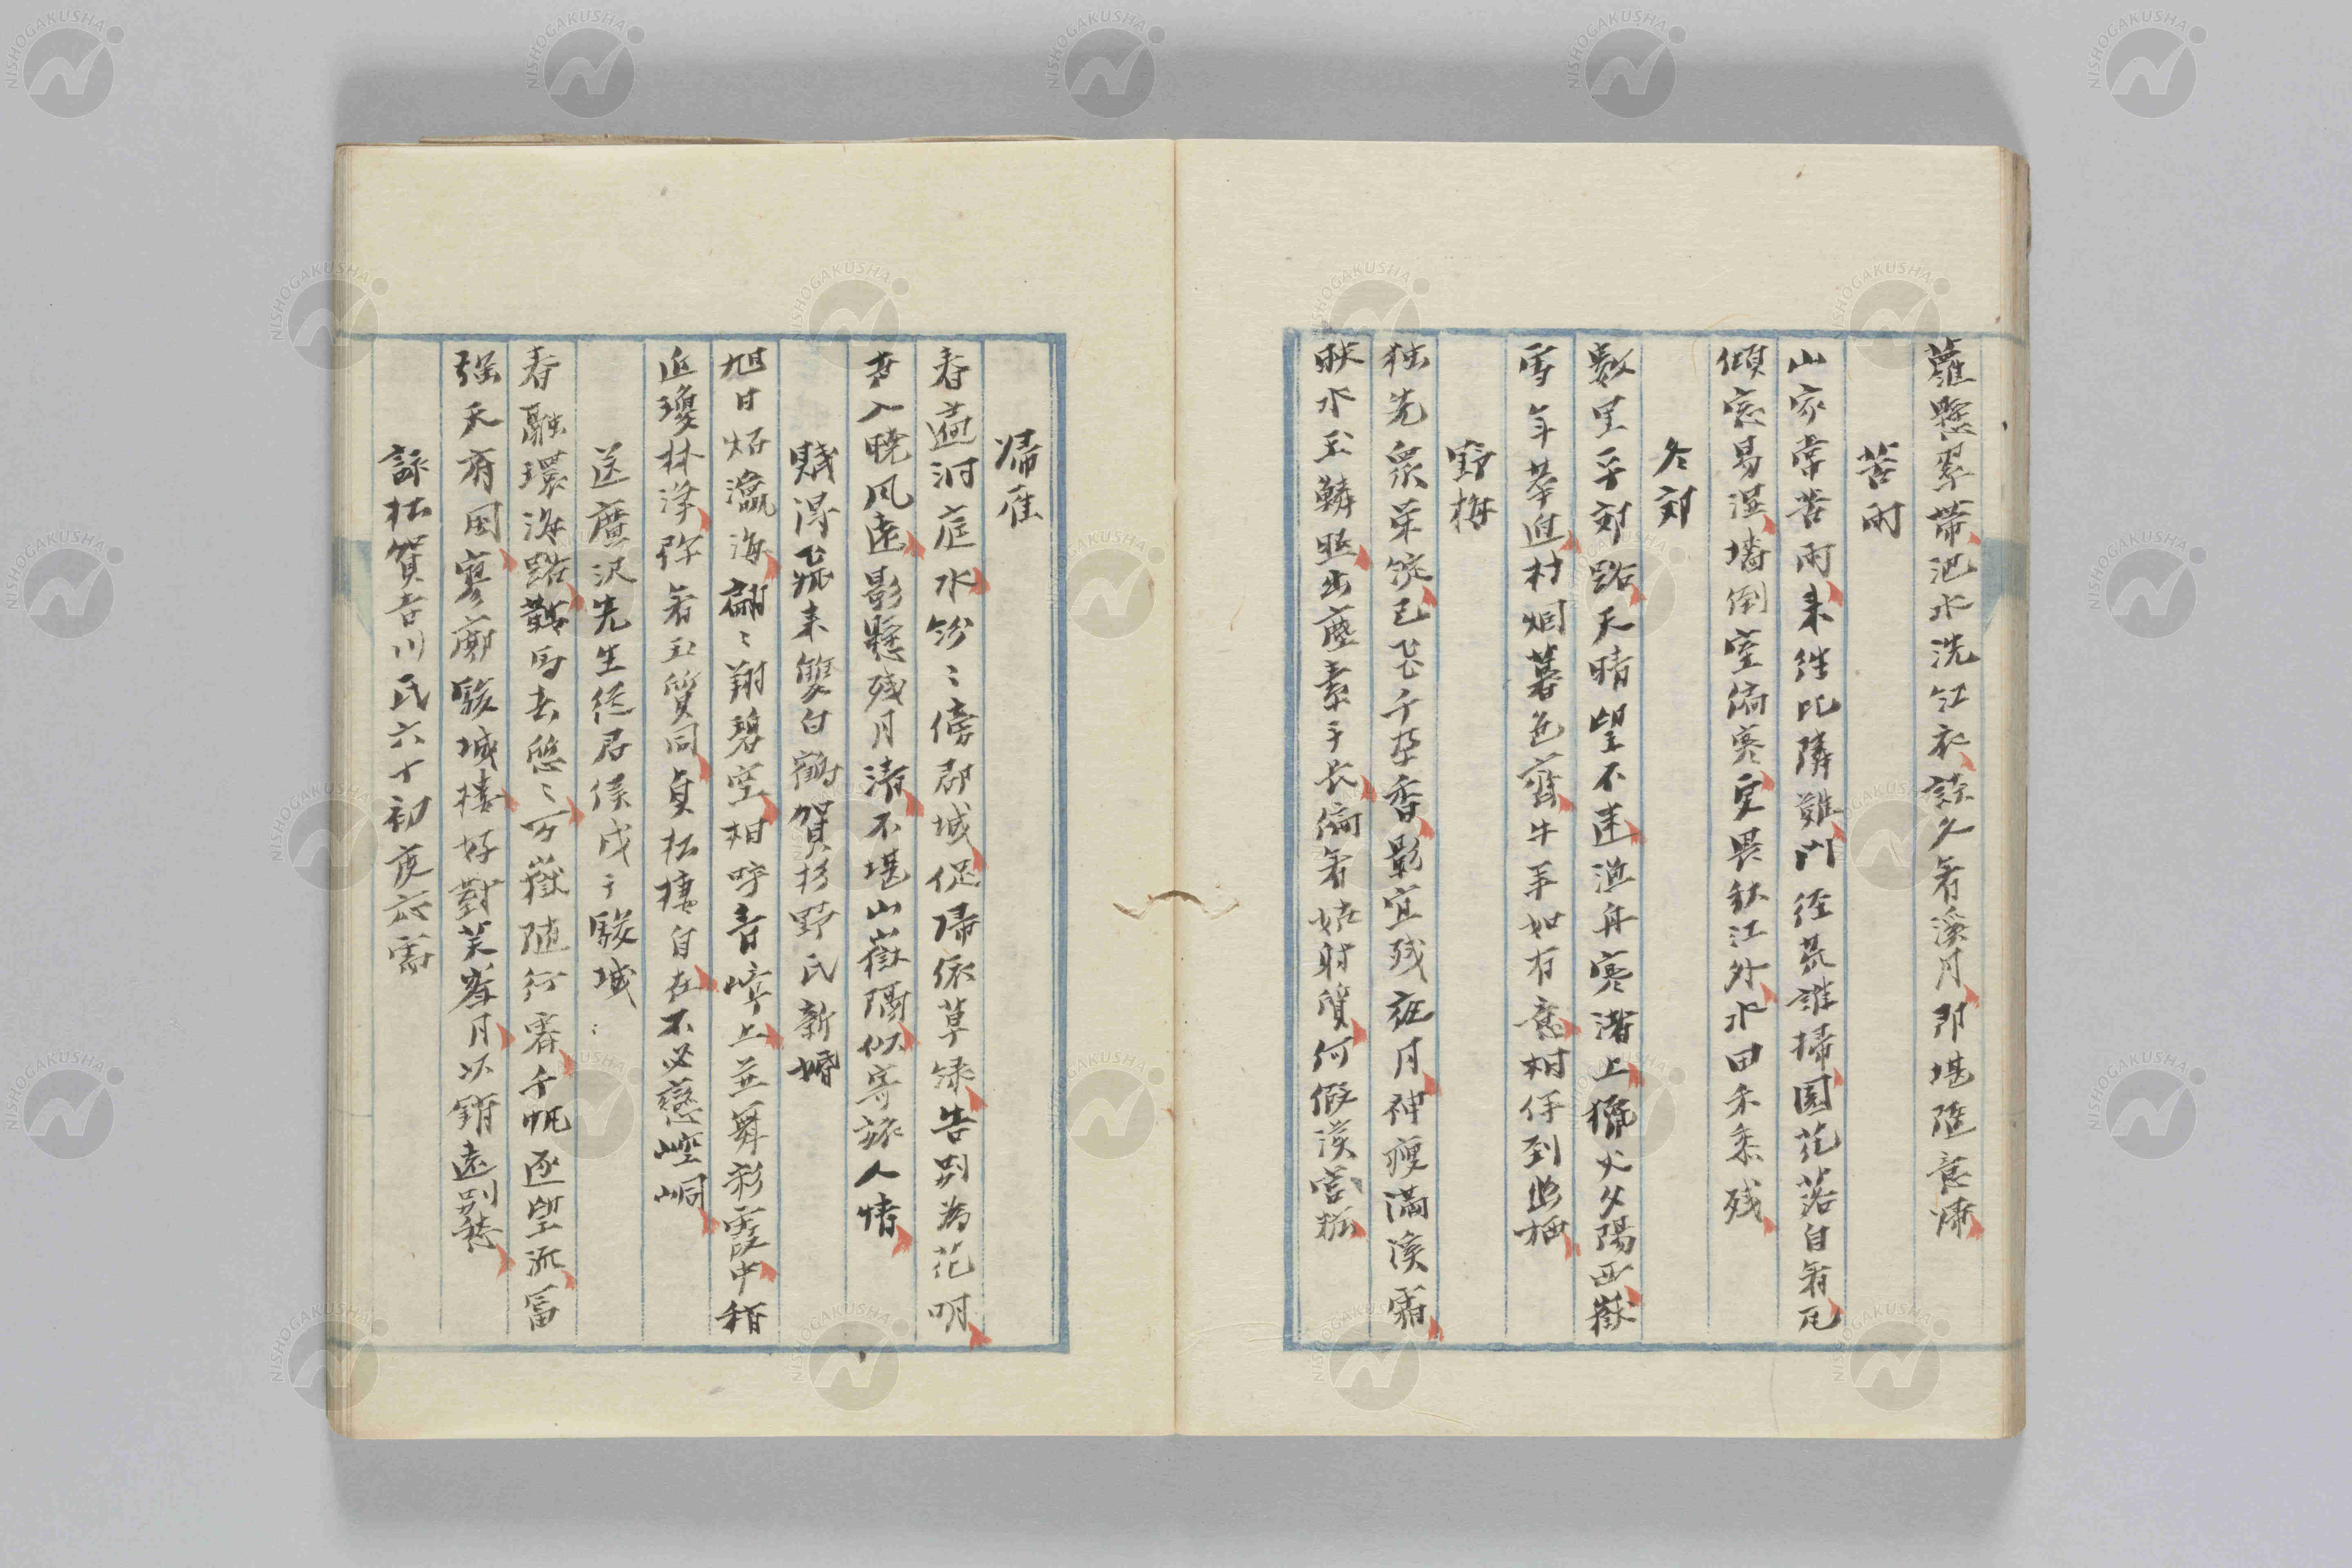 蘿懸翠帶池水洗紅衣談久看溪月即堪陸意
苦雨
山家常苦雨来往比隣難門徑荒誰掃園花落自看瓦
傾窓易湿墻倒室偏寒更畏秋江外水田禾黍残
冬郊
數里平郊路天晴望不迷漁舟寒渚上猟火夕陽西嶽
雪年華迫村烟暮色齊牛羊如有意相伴到幽栖
野梅
独先衆菜綻已発千葩香影宜残夜月神痩滿渓霜
映水玉鱗照出塵素手長偏看姑射質何假漢宮粧
帰雁
春過洞庭水紛〻傍郡城促帰依草緑告別為花明
声入曉風遠影懸残月清不堪山嶽隔似寄旅人情
賤得飛来雙白鶴賀杉野氏新婚
旭日炤瀛海翩〻翔碧空相呼音嶂上並舞彩霞中稍
近瓊林浄弥看玉質同貞松棲自在不必戀崆峒
送廣沢先生従君侯戍于駿城
春融環海路鞍馬去悠〻万嶽随行霽千帆逐望流富
强天府固寥廓駿城樓好對芙峯月以銷遠別愁
詠松賀吉川氏六十初度応需